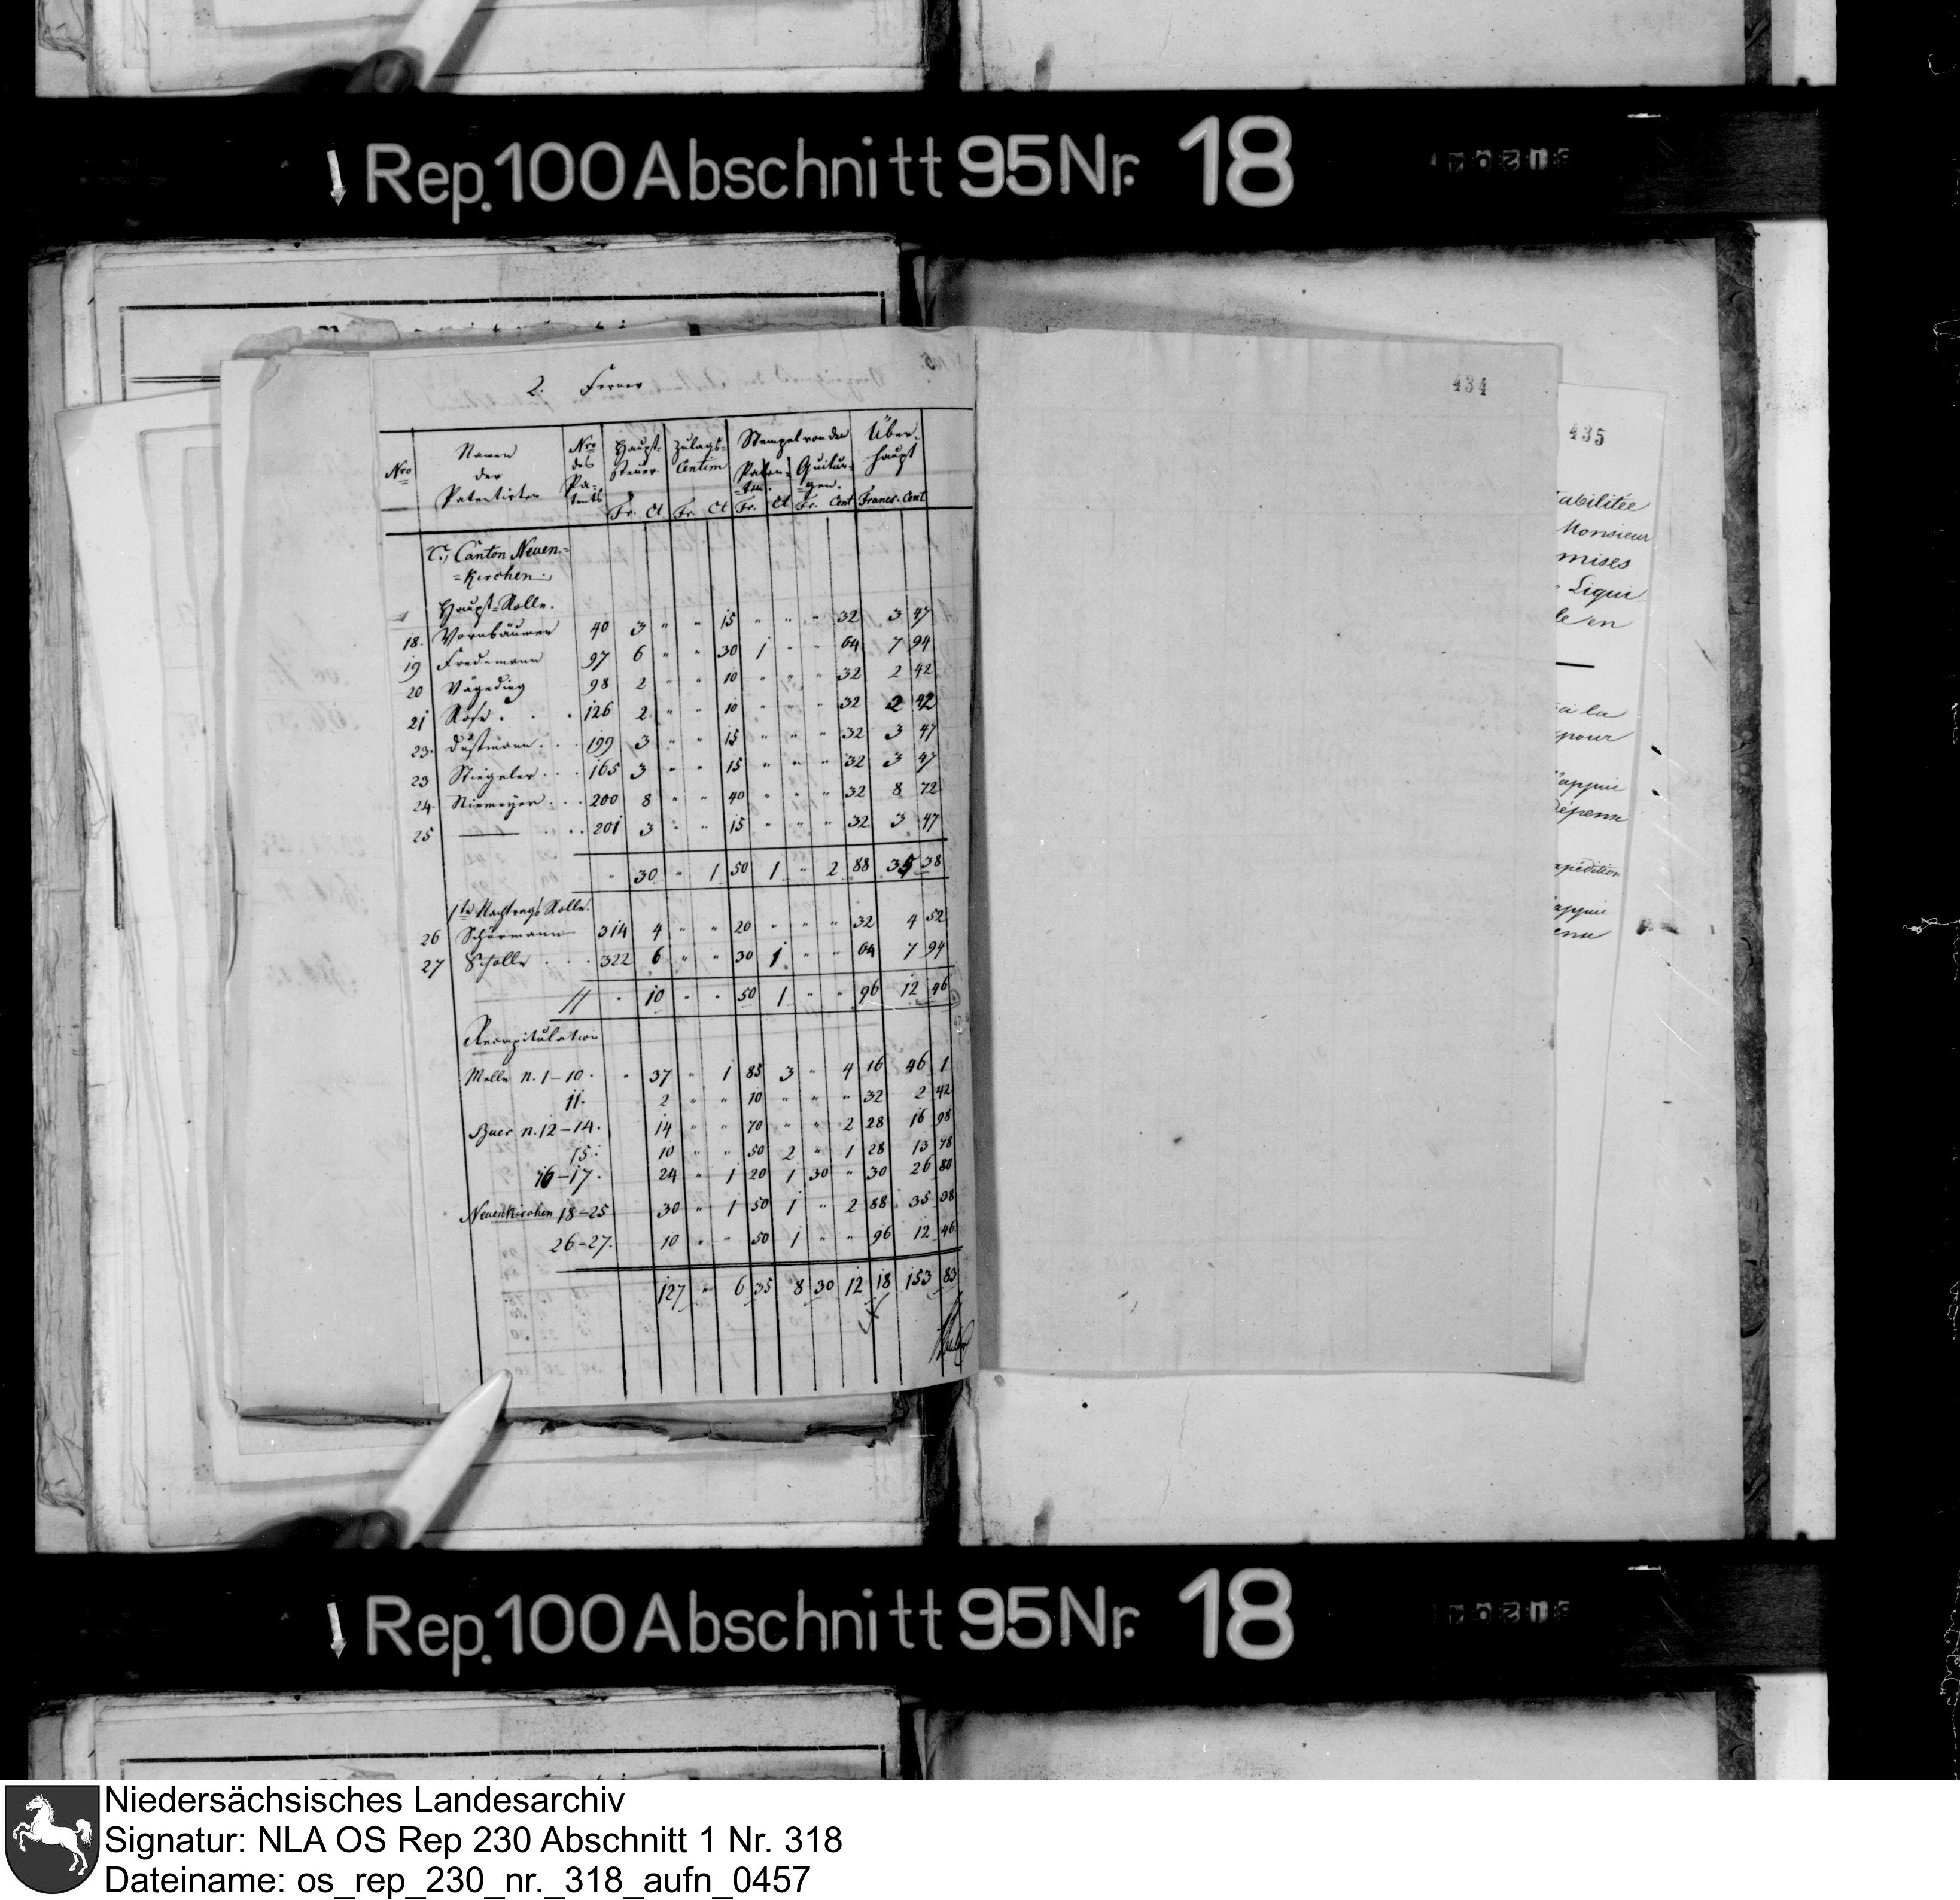 Rep. 100 Abschnitt 95 Nr. 18
2. Ferner
434
435
Nro
Namen der Patentirten
Nro des Pa=tents
Haupt=steuer
Zulags=Centim
Stempel von den
Paten=ten. Quitun=gen.
Über=haupt
Fr. Ct Fr. Ct Fr. Ct Fr. Cent Francs. Cent
C., Canton Neuen=
=Kirchen.
Haupt=Rolle.
18. Vornbäumen 40 3 " " 15 " " " 32 3 47
19 Fredemann 97 6 " " 30 1 " " 64 7 94
20 Vägeding 98 2 " " 10 " " " 32 2 42
21 Rose . . . 126 2 " " 10 " " " 32 2 42
23. Dustmann . . 199 3 " " 15 " " " 32 3 47
23 Stiegeler . . . 165 3 " " 15 " " " 32 3 47
24. Niemeyer . . . 200 8 " " 40 " " " 32 8 72
25 — . . . 201 3 " " 15 " " " 32 3 47
" 30 " 1 50 1 " 2 88 35 38
1te Nachtrags Rolle.
26 Schürmann 314 4 " " 20 " " " 32 4 52
27 Scholle . . . 322 6 " " 30 1 " " 64 7 94
" 10 " " 50 1 " " 96 12 46
Recapitulation
Melle n. 1–10. " 37 " 1 85 3 " 4 16 46 1
11. 2 " " 10 " " " 32 2 42
Buer n. 12–14. 14 " " 70 " " 2 28 16 98
15. 10 " " 50 2 " 1 28 13 78
16–17. 24 " 1 20 1 30 " 30 26 80
Neuenkirchen 18–25 30 " 1 50 1 " 2 88 35 38
26–27. 10 " " 50 1 " " 96 12 46
127 " 6 35 8 30 12 18 153 83
abilitée
Monsieur
mises
Liqui
le en
à la
pour
l'appui
Dépense
xpédition
appui
ense
Rep. 100 Abschnitt 95 Nr. 18
Niedersächsisches Landesarchiv
Signatur: NLA OS Rep 230 Abschnitt 1 Nr. 318
Dateiname: os_rep_230_nr._318_aufn_0457